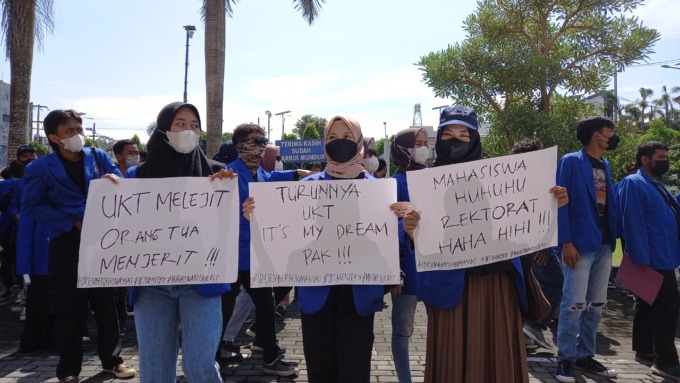 TERIMA KASIH
SUDAH
PARKIR MUNDUR
UKT MELEJIT
ORANG TUA
MENJERIT !!!
TURUNNYA
UKT
IT'S MY DREAM
PAK !!!
MAHASISWA
HUHUHU
REKTORAT
HAHA HIHI !!!